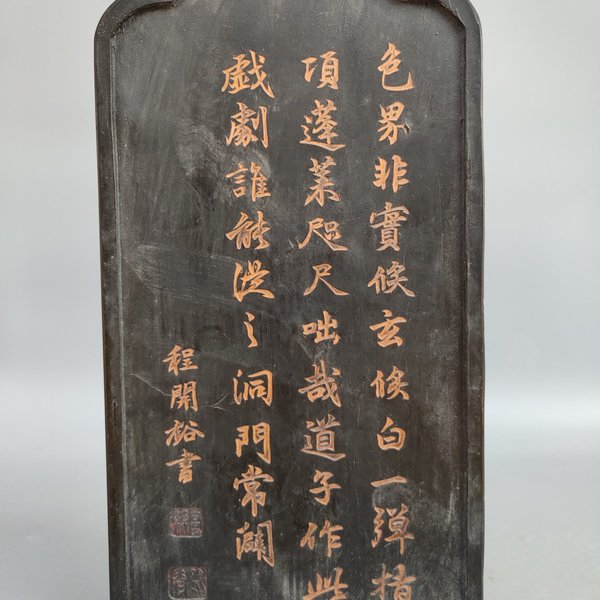 色界非實倏玄倏白一彈指
項蓬莱咫尺咄哉道子作此
戯劇誰能從之洞門常闢
程開裕書